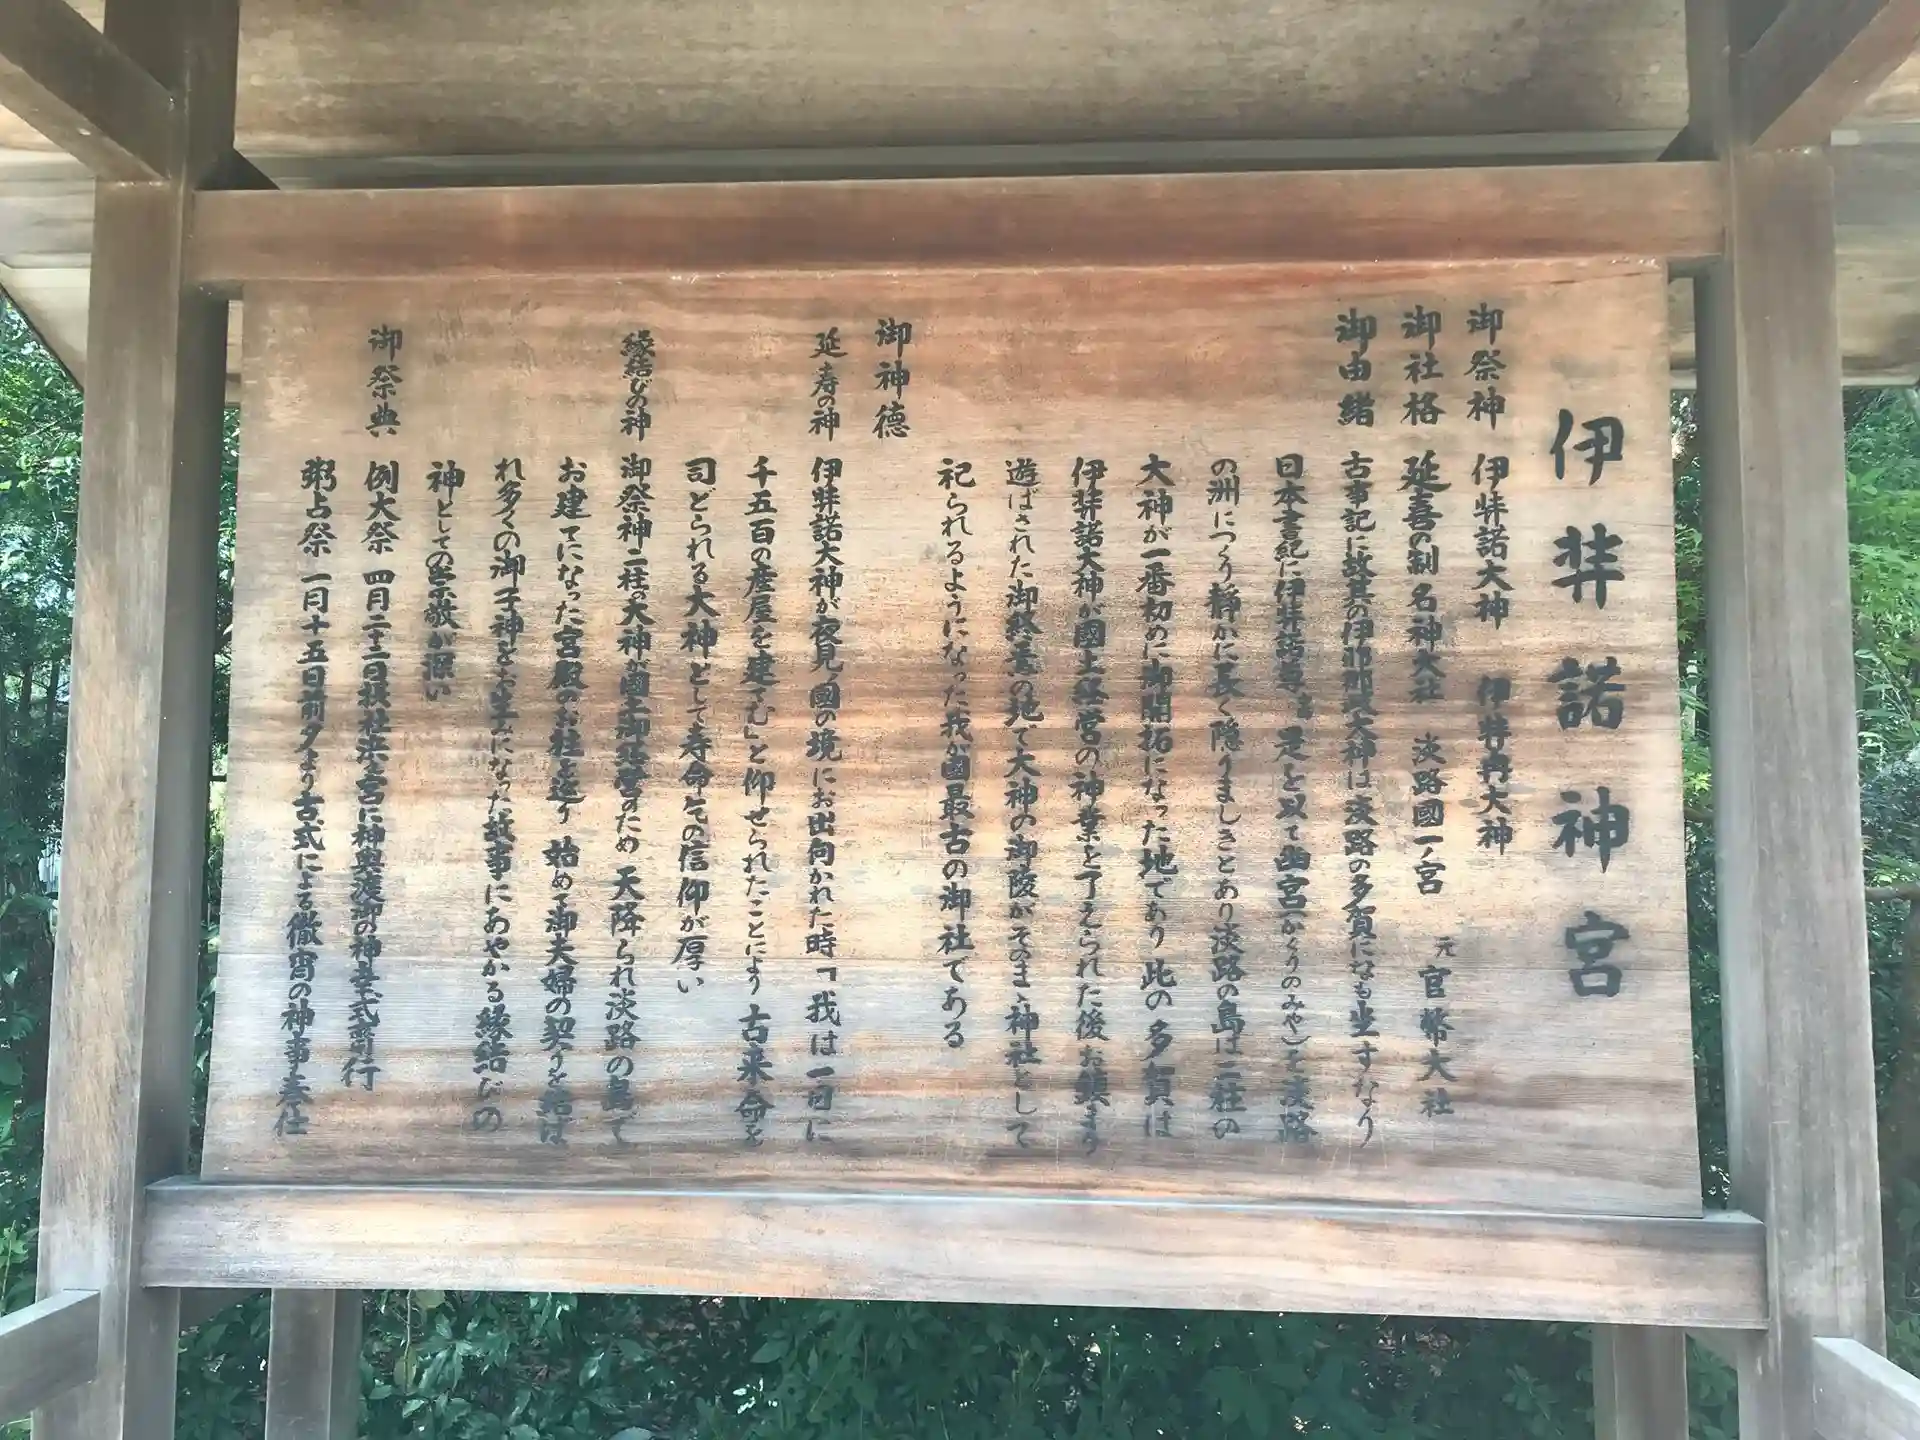 伊弉諾神宮
御祭神 伊弉諾大神 伊弉冉大神
御社格 延喜の制 名神大社 淡路國一ノ宮 元 官幣大社
御由緒 古事記に故其の伊邪那岐大神は淡路の多賀になも坐すなり
日本書紀に伊弉諾尊 是を以て幽宮(かくりのみや)を淡路
の洲につくり静かに長く隠りましきとあり淡路の島は二柱の
大神が一番初めに御開拓になった地であり 此の多賀は
伊弉諾大神が國土経営の神業を了えられた後お鎮まり
遊ばされた御終焉の地で大神の御陵がそのまゝ神社として
祀られるようになった我が國最古の御社である
御神徳
延寿の神 伊弉諾大神が夜見ノ國の境にお出向かれた時「我は一日に
千五百の産屋を建てむ」と仰せられたことにより 古来命を
司どられる大神として寿命その信仰が厚い
縁結びの神 御祭神二柱の大神が國土御経営のため 天降られ淡路の島で
お建てになった宮殿のお柱を廻り 始めて御夫婦の契りを結ば
れ多くの御子神をお生みになった故事にあやかる縁結びの
神としての崇敬が深い
御祭典 例大祭 四月二十二日摂社浜ノ宮に神輿渡御の神幸式斎行
粥占祭 一月十五日前夕より古式による徹宵の神事奉仕